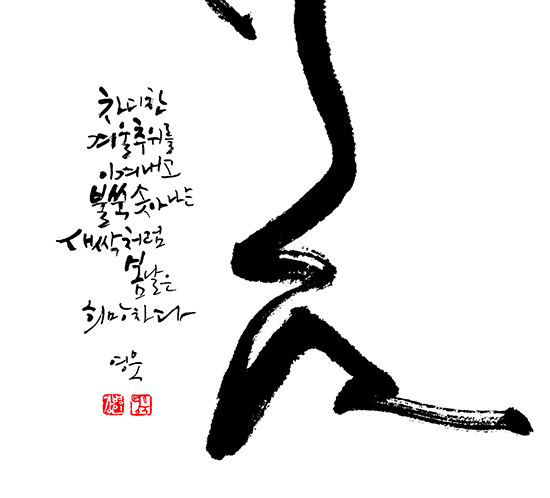 차디찬
겨울추위를
이겨내고
불쑥 솟아나는
새싹처럼
봄날은
희망차다
영웃